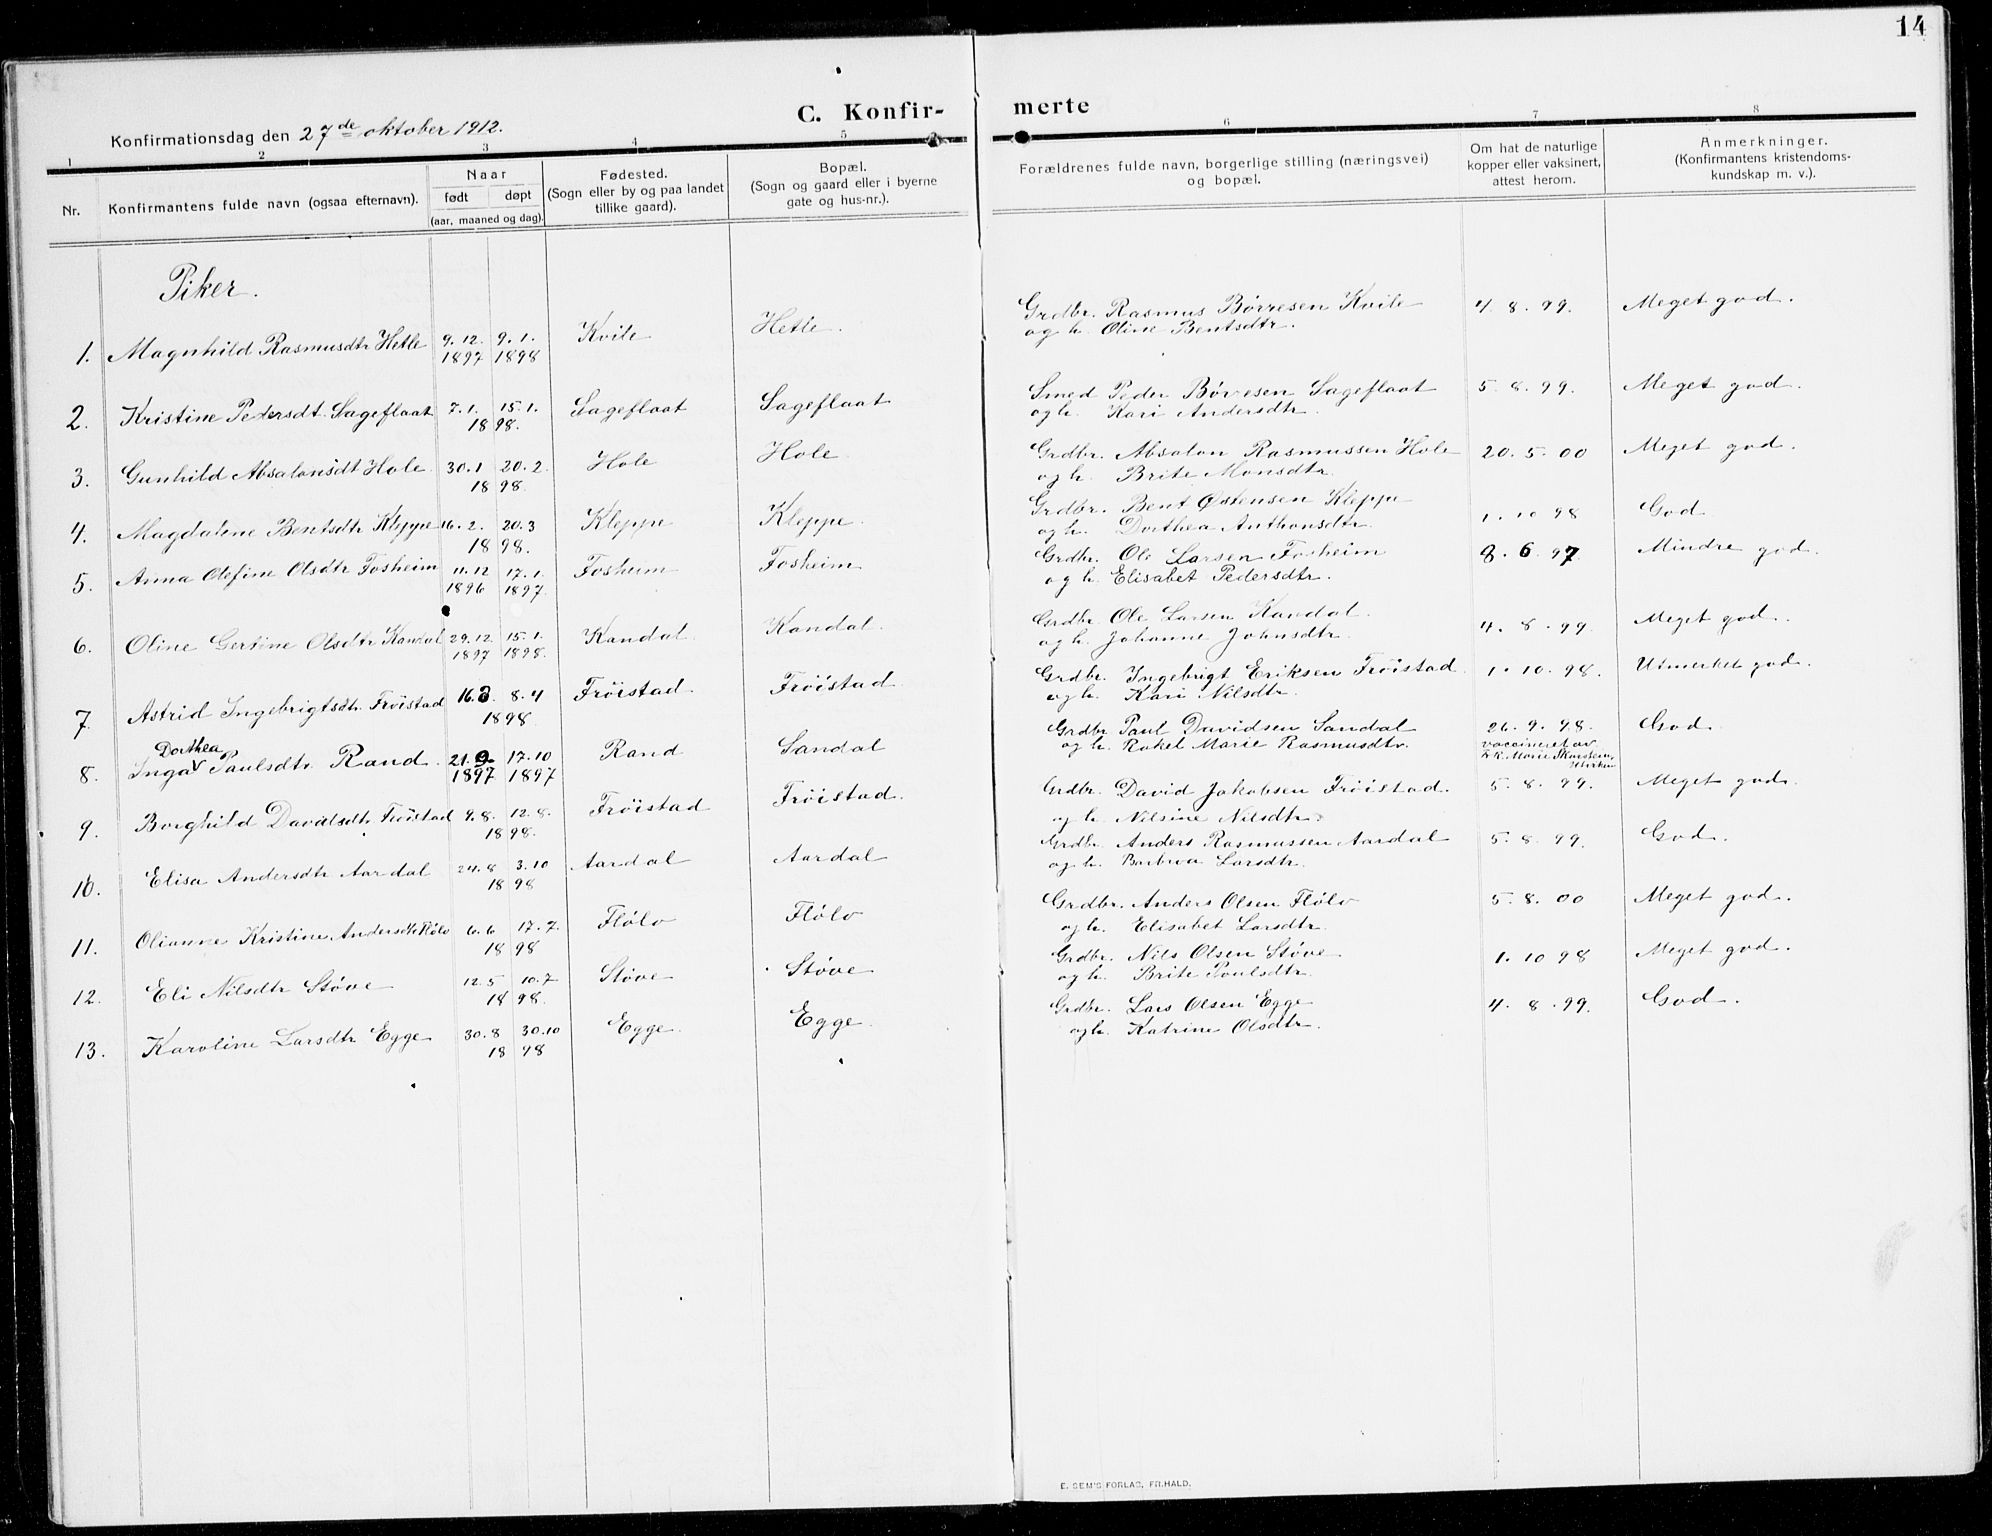 14
C. Konfir- merte
Konfirmationsdag den 27de oktober 1912.
1 2 3 4 5 6 7 8
Nr. Konfirmantens fulde navn (ogsaa efternavn).
Naar
født døpt
(aar, maaned og dag).
Fødested.
(Sogn eller by og paa landet
tillike gaard).
Bopæl.
(Sogn og gaard eller i byerne
gate og hus-nr.).
Forældrenes fulde navn, borgerlige stilling (næringsvei)
og bopæl.
Om hat de naturlige
kopper eller vaksinert,
attest herom.
Anmerkninger.
(Konfirmantens kristendoms-
kundskap m. v.).
Piker.
1. Magnhild Rasmusdtr Hetle 9.12. 9.1. Kvile Hetle. Grdbr. Rasmus Børresen Kvile 4.8.99. Meget god.
1897 1898 og h. Oline Bentsdtr.
2. Kristine Pedersdt. Sageflaat 7.1. 15.1. Sageflaat Sageflaat Smed Peder Børresen Sageflaat 5.8.99. Meget god.
1898. og h. Kari Andersdtr.
3. Gunhild Absalonsdt Hole 30.1 20.2. Hole Hole. Grdbr. Absalon Rasmussen Hole 20.5.00 Meget god.
1898. og h. Brite Monsdtr.
4. Magdalene Bentsdtr Kleppe 16.2. 20.3 Kleppe Kleppe. Grdbr. Bent Østensen Kleppe 1.10 98 God
1898. og h. Dorthea Anthonsdtr.
5. Anna Olefine Olsdtr Fosheim 11.12 17.1. Fosheim Fosheim Grdbr. Ole Larsen Fosheim 8.6.97 Mindre god.
1896 1897. og h. Elisabet Pedersdtr.
6. Oline Gertine Olsdtr Kandal 29.12. 15.1. Kandal Kandal. Grdbr Ole Larsen Kandal. 4.8.99. Meget god.
1897 1898. og h. Johanne Johnsdtr.
7. Astrid Ingebrigtsdtr. Frøistad 16.3. 8.4 Frøistad Frøistad. Grdbr. Ingebrigt Eriksen Frøistad 1.10.98. Utmerket god.
1898. og h. Kari Nilsdtr.
Dorthea
8. Inga Paulsdtr. Rand. 21.9. 17.10 Rand Sandal Grdbr Paul Davidsen Sandal 26.9.98. God.
1897 1897 og h. Rakel Marie Rasmusdtr. vaccineret av
Marie
9. Borghild Davidsdtr Frøistad 9.8. 12.8. Frøistad Frøistad. Grdbr. David Jakobsen Frøistad. 5.8.99. Meget god.
1898. og h. Nilsine Nilsdtr.
10. Elisa Andersdtr Aardal 24.8 3.10 Aardal Aardal Grdbr. Anders Rasmussen Aardal 5.8.99. God.
1898 og h. Barbra Larsdtr.
11. Olianne Kristine Andersdtr Flølo 6.6 17.7. Flølo Flølo Grdbr. Anders Olsen Flølo 5.8.00 Meget god.
1898 og h. Elisabet Larsdtr.
12. Eli Nilsdtr Støve 12.5 10.7 Støve Støve Grdbr. Nils Olsen Støve 1.10 98 Meget god.
1898. og h. Brite Paulsdtr.
13. Karoline Larsdtr Egge 30.8 30.10 Egge. Egge. Grdbr. Lars Olsen Egge 4.8.99. God.
1898 og h. Katrine Olsdtr.
E. SEM'S FORLAG, FR.HALD.